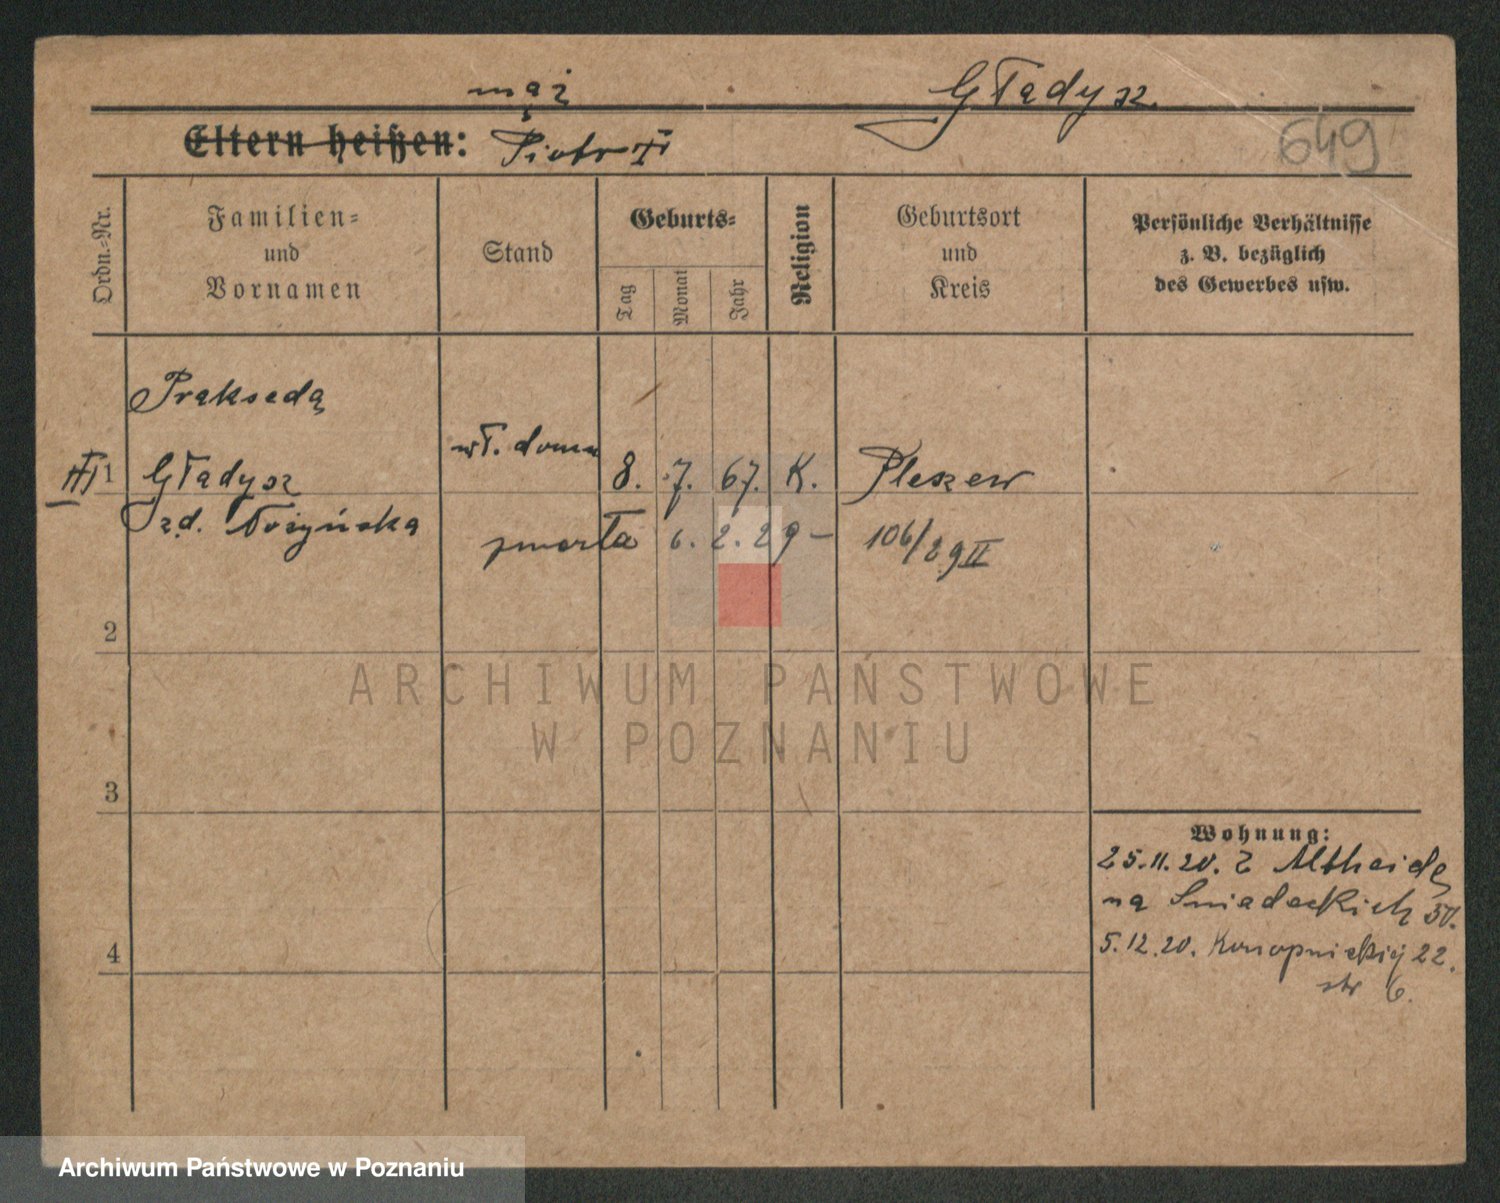 mąż Gładysz
Eltern heißen: Piotr II
649
Ordn.-Nr.
Familien-
und
Vornamen
Stand
Geburts-
Tag
Monat
Jahr
Religion
Geburtsort
und
Kreis
Persönliche Verhältnisse
z. B. bezüglich
des Gewerbes usw.
Prakseda
wł. domu
1 Gładysz 8. 7. 67. K. Pleszew
zd. zmarła 6. 2. 29 – 106/29 II
2
ARCHIWUM PAŃSTWOWE
W POZNANIU
3
Wohnung:
25.11.20. z Altheide
na Śniadeckich
5.12.20. Konopnickiej 22.
str 6.
4
Archiwum Państwowe w Poznaniu